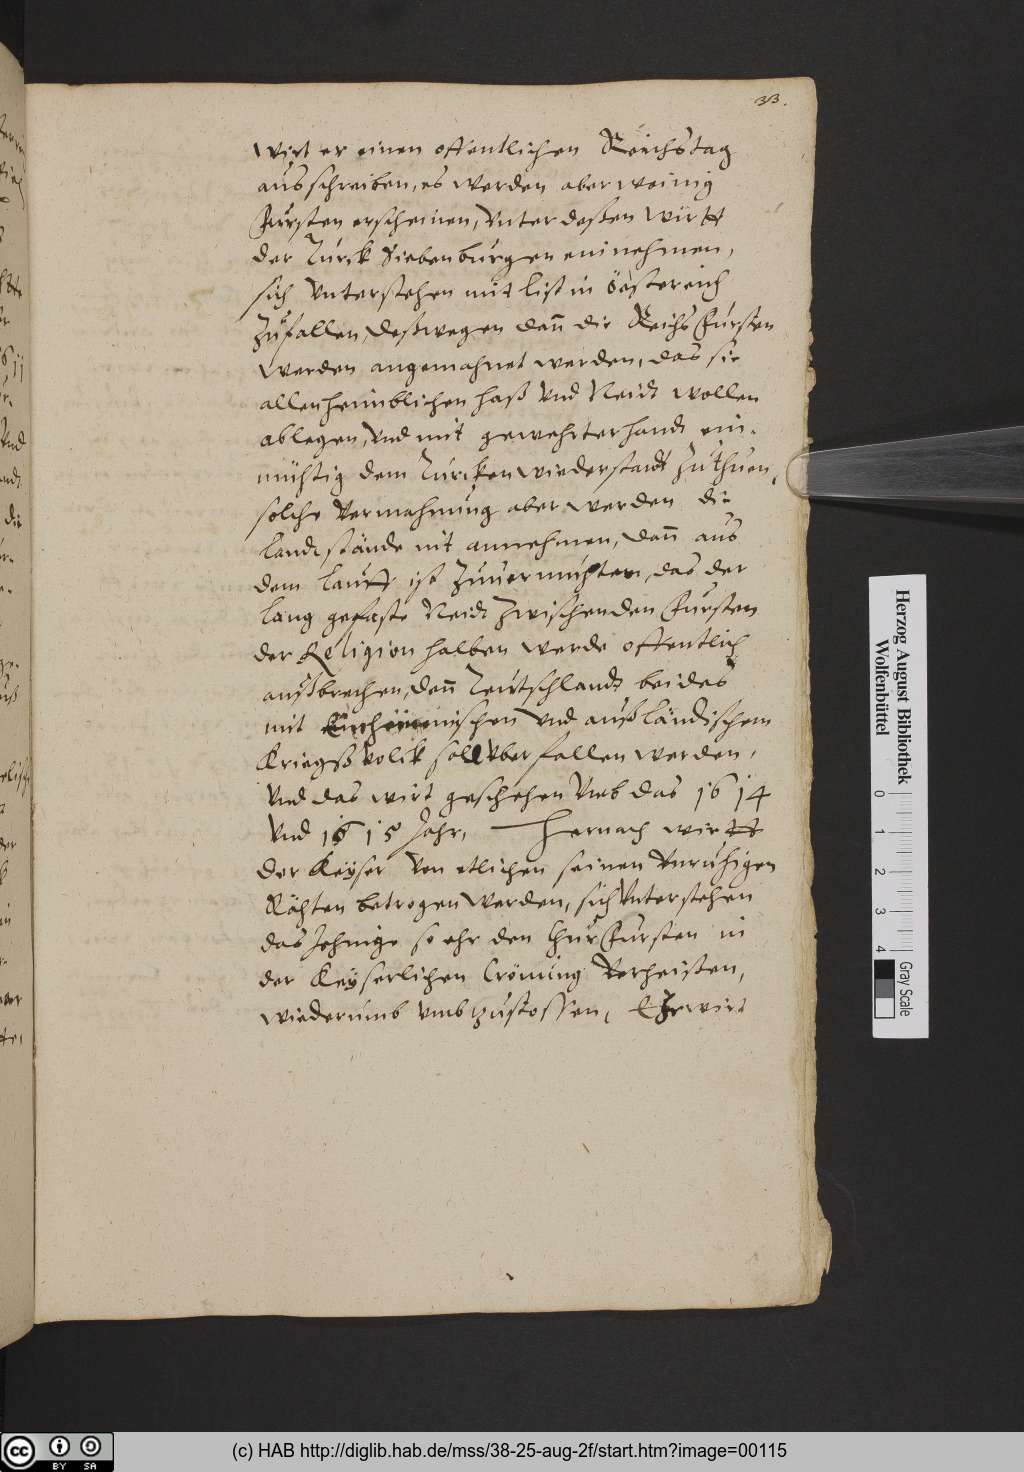 33.
wirt er einen offentlichen Reichstag
ausschreiben, es werden aber weinig
Fursten erscheinen, Vnter deßen wirtt
der Turck Siebenburgen einnehmen,
sich Vnterstehen mit list in Öestereich
Zufallen, deßwegen dan̄ die Reichs Fursten
werden angemahnet werden, das sie
allen heimblichen haß Vnd Neidt wollen
ablegen, Vnd mit gewehrter handt ein-
mühtig dem Turcken wiederstandt Zuthuen,
solche Vermahnung aber werden die
landtstände nit annehmen, dan̄ aus
dem lauff ist Zuuermuhten, das der
lang gefaste Neidt Zwischen den Fursten
der Religion halben werde offentlich
außbrechen, den̄ Teutschlandt beides
mit Einheimischen Vnd außländischem
Kriegß Volck soll Vberfallen werden,
Vnd das wirt geschehen Vmb das 1614
Vnd 1615 Jahr, Hernach wirtt
der Keyser Von etlichen seinen Vnruhigen
Rähten betrogen werden, sich Vnterstehen
das Jehnige so ehr den ChurFursten in
der Keyserlichen Crönung Verheisten,
wiederumb vmbzustossen, Ehr wirt
Herzog August Bibliothek
Wolfenbüttel
0 1 2 3 4
Gray Scale
cc BY SA
(c) HAB http://diglib.hab.de/mss/38-25-aug-2f/start.htm?image=00115